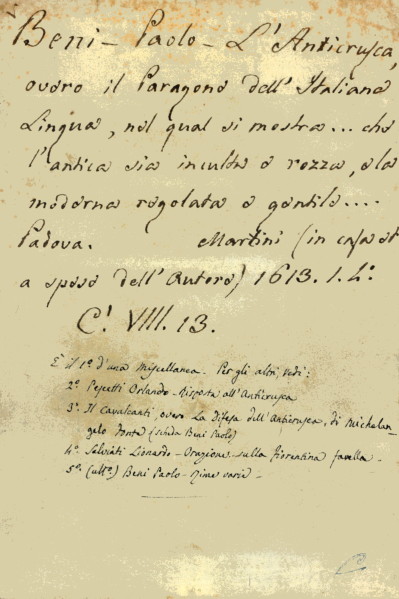 Beni - Paolo - L'Anticrusca,
overo il Paragone dell'Italiana
Lingua, nel qual si mostra... che
l'antica sia inculta e rozza, e la
moderna regolata e gentile....
Padova. Martini (in casa et
a spese dell'Autore) 1613. 1. 4°.
C! VIII. 13.
È il 1° d'una Miscellanea. Per gli altri vedi:
2°. Pescetti Orlando - Risposta all'Anticrusca
3°. Il Cavalcanti, overo La Difesa dell'Anticrusca, di Michelan
gelo Fonte (scinda Beni Paolo)
4°. Salviati Lionardo - Orazione sulla fiorentina favella -
5°. (ult°.) Beni Paolo - Rime varie -